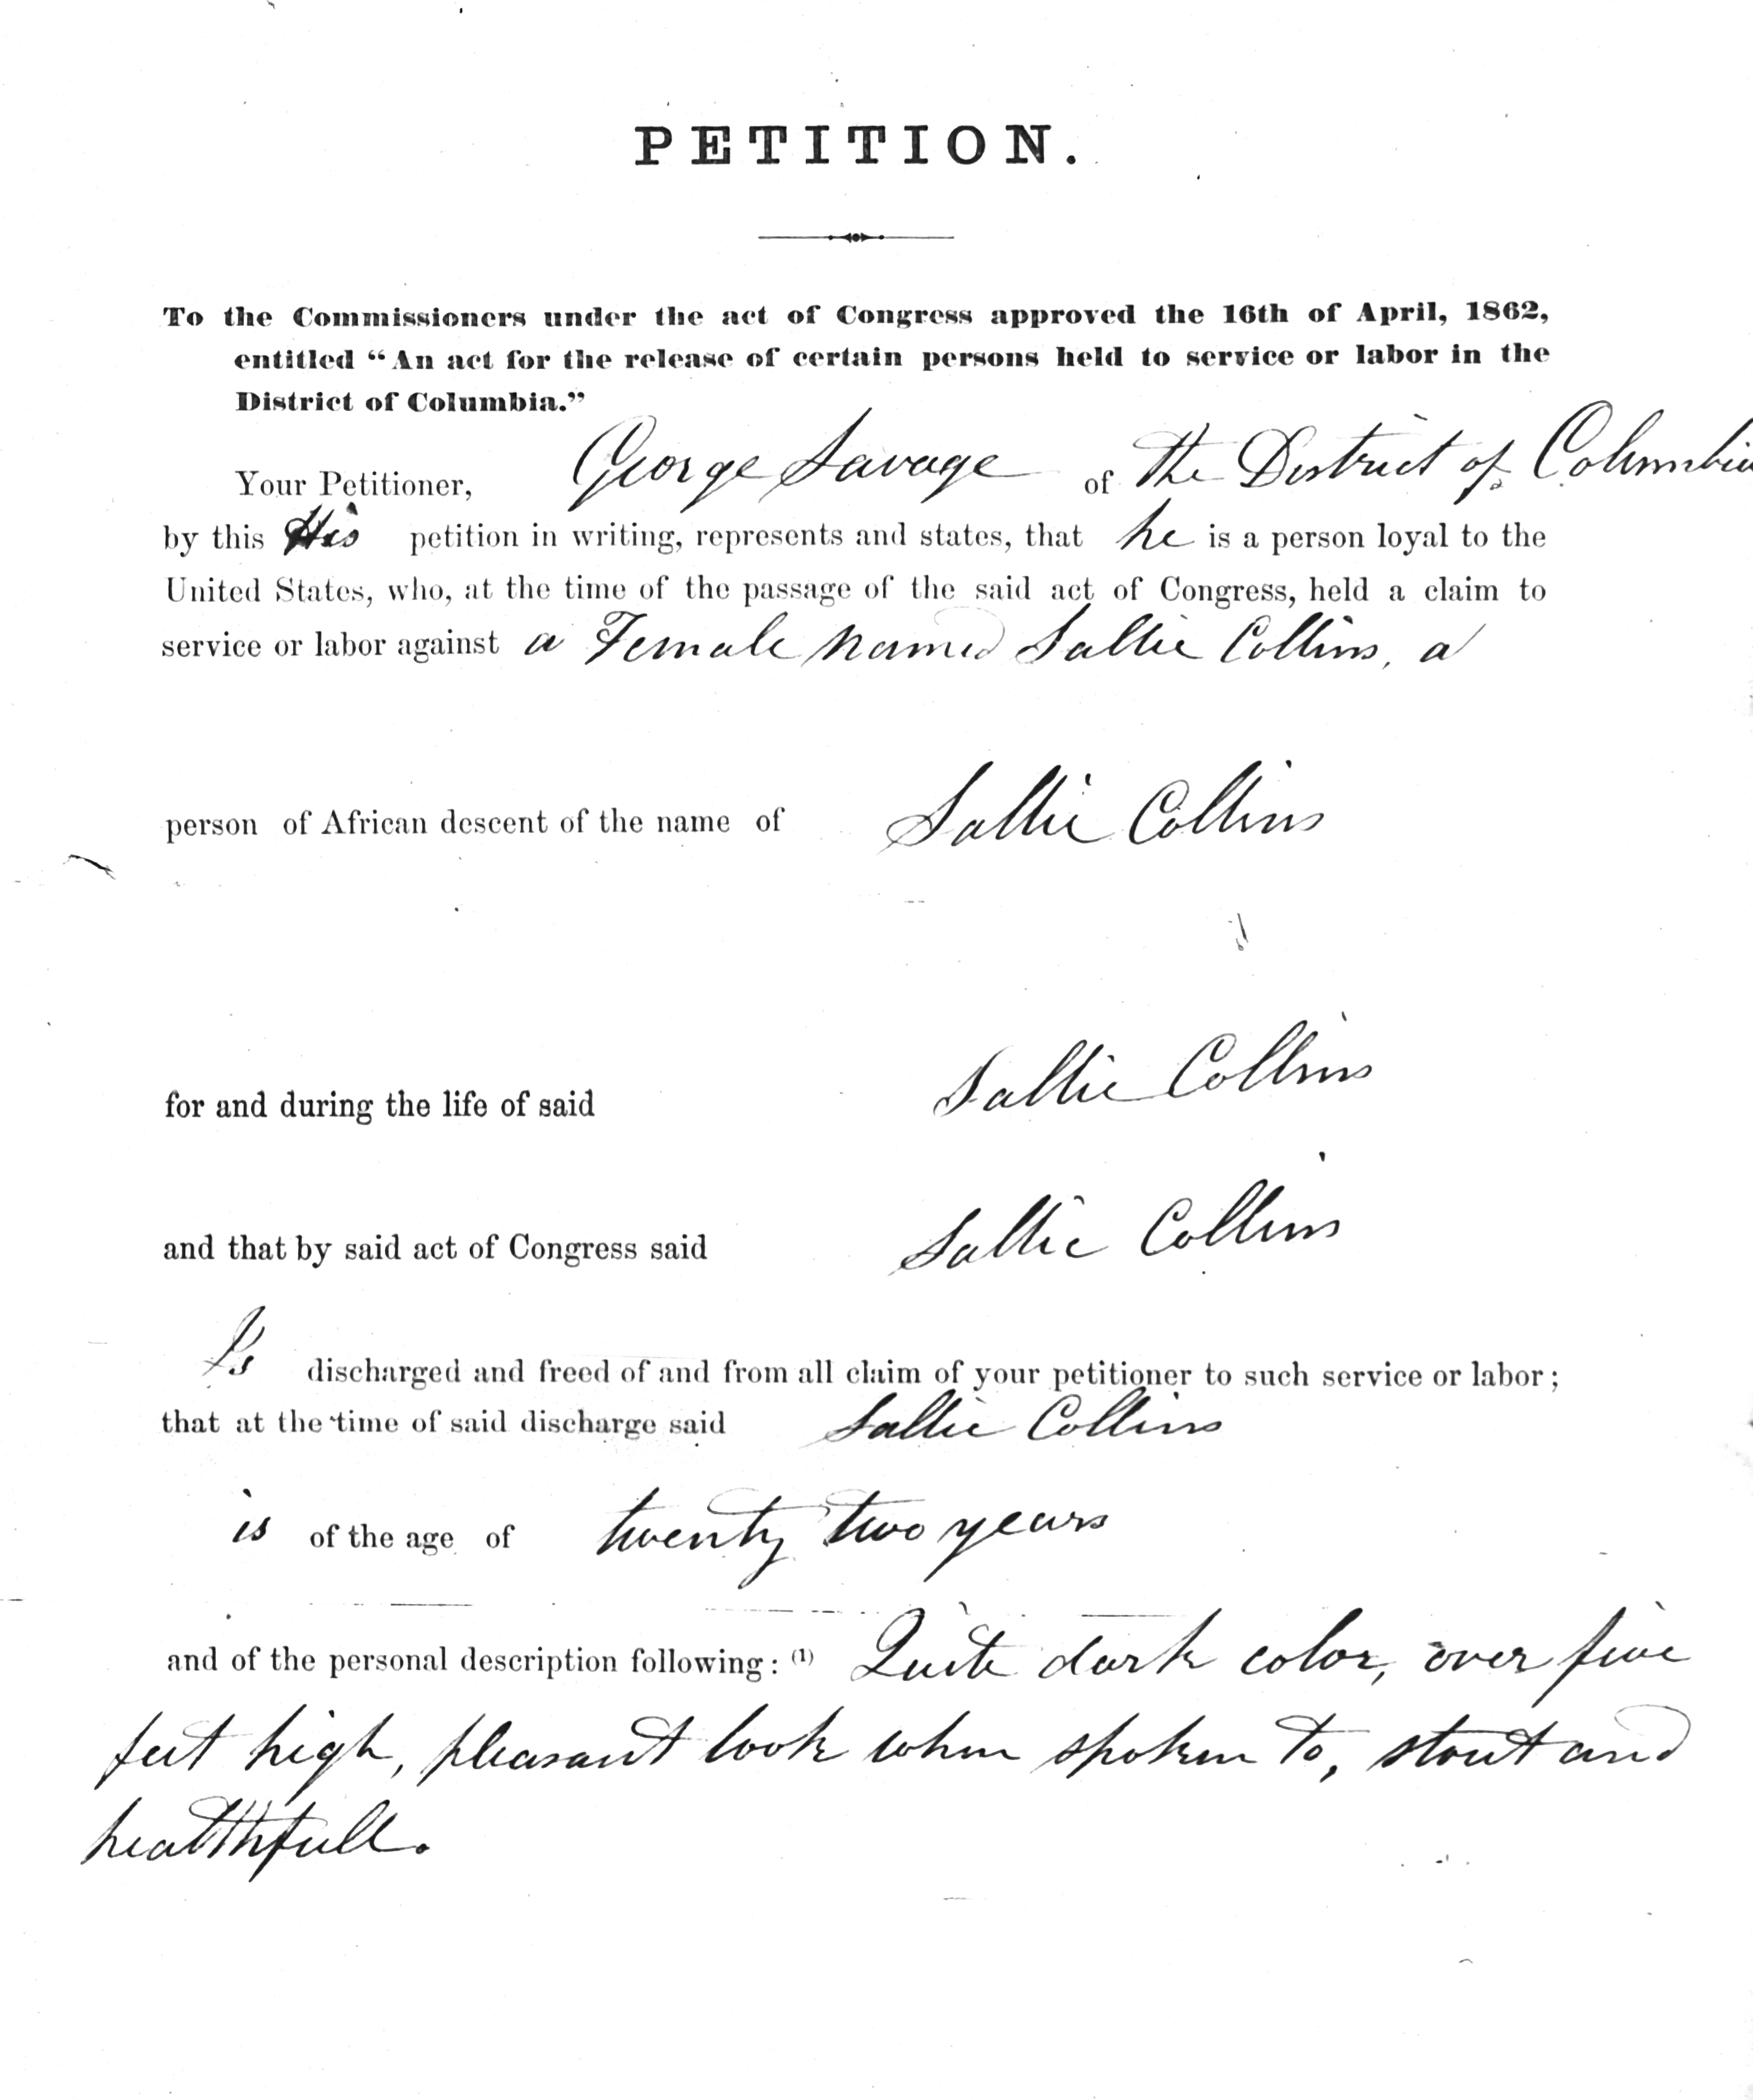 PETITION.
To the Commissioners under the act of Congress approved the 16th of April, 1862,
entitled “An act for the release of certain persons held to service or labor in the
District of Columbia.”
Your Petitioner, George Savage of The District of Columbia
by this His petition in writing, represents and states, that he is a person loyal to the
United States, who, at the time of the passage of the said act of Congress, held a claim to
service or labor against a Female named Sallie Collins, a
person of African descent of the name of Sallie Collins
for and during the life of said Sallie Collins
and that by said act of Congress said Sallie Collins
Is discharged and freed of and from all claim of your petitioner to such service or labor;
that at the time of said discharge said Sallie Collins
is of the age of twenty two years
and of the personal description following: (1) Quite dark color, over five
feet high, pleasant look when spoken to, stout and
healthfull.